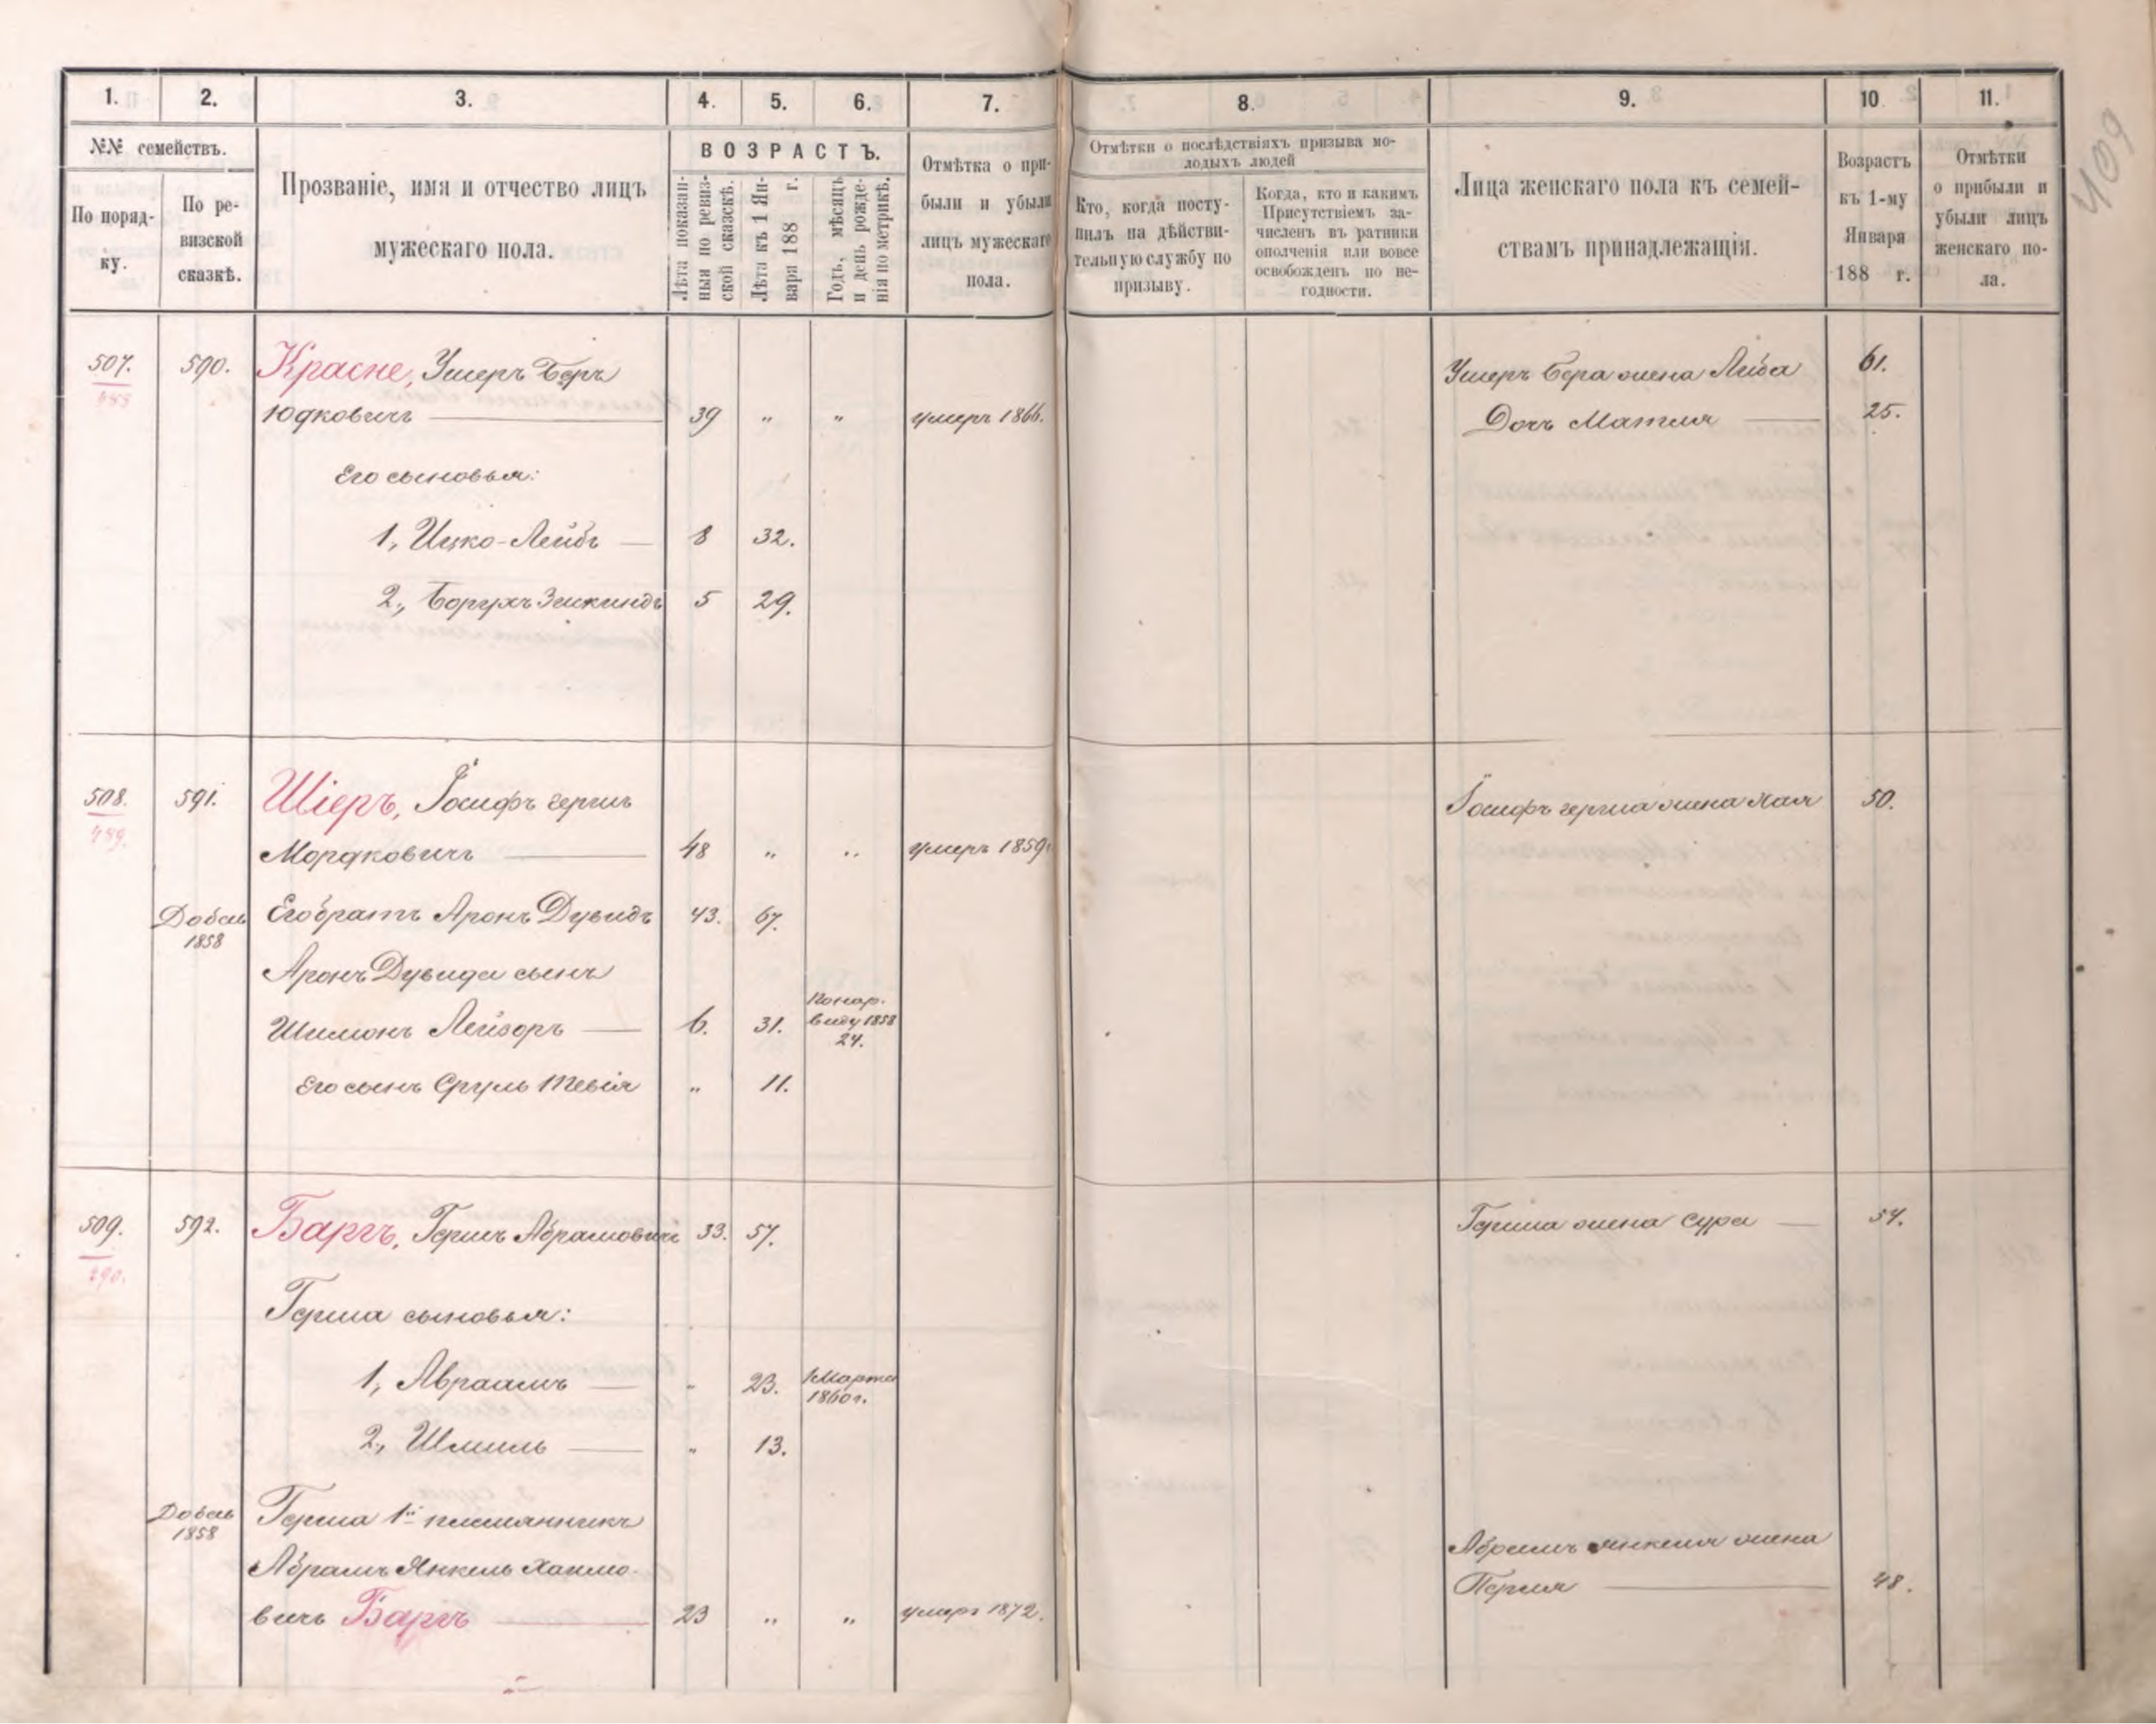 409
1. 2. 3. 4. 5. 6. 7. 8. 9. 10 11.
№№ семействъ.
По поряд-
ку.
По ре-
визской
сказкѣ.
Прозваніе, имя и отчество лицъ
мужескаго пола.
ВОЗРАСТЪ.
Лѣта показан-
ныя по ревиз-
ской сказкѣ.
Лѣта къ 1 Ян-
варя 188 г.
Годъ, мѣсяцъ
и день рожде-
нія по метрикѣ.
Отмѣтка о при-
были и убыли
лицъ мужескаго
пола.
Отмѣтки о послѣдствіяхъ призыва мо-
лодыхъ людей
Кто, когда посту-
пилъ на дѣйстви-
тельную службу по
призыву.
Когда, кто и какимъ
Присутствіемъ за-
численъ въ ратники
ополченія или вовсе
освобожденъ по не-
годности.
Лица женскаго пола къ семей-
ствамъ принадлежащія.
Возрастъ
къ 1-му
Января
188 г.
Отмѣтки
о прибыли и
убыли лицъ
женскаго по-
ла.
507. 590. Красне, Умеръ Беръ
488
Юдковичъ 39 „ „ умеръ 1866.
Его сыновья:
1, Ицко-Лейбъ 8 32.
2, Борухъ Зискиндъ 5 29.
Умеръ Бера жена Лейба 61.
Дочь Матля 25.
508. 591. Шіеръ, Іосифъ Гершъ
489.
Мордковичъ 48 „ „ умеръ 1859
Добав 1858 Его братъ Аронъ Дувидъ 43. 67.
Аронъ Дувида сынъ
Шимонъ Лейзоръ 6. 31. По нар. виду 1858 24.
Его сынъ Сруль Тевія „ 11.
Іосифъ Герша жена Хая 50.
509. 592. Баргъ, Гершъ Абрамовичъ 33. 57.
490.
Герша сыновья:
1, Авраамъ „ 23. 1 Марта 1860 г.
2, Шмиль „ 13.
Добав 1858 Герша 1й племянникъ
Абрамъ Янкель Хаимо-
вичъ Баргъ 23 „ „ умеръ 1872.
Герша жена Сура 54.
Абрамъ Янкеля жена
Перля 48.